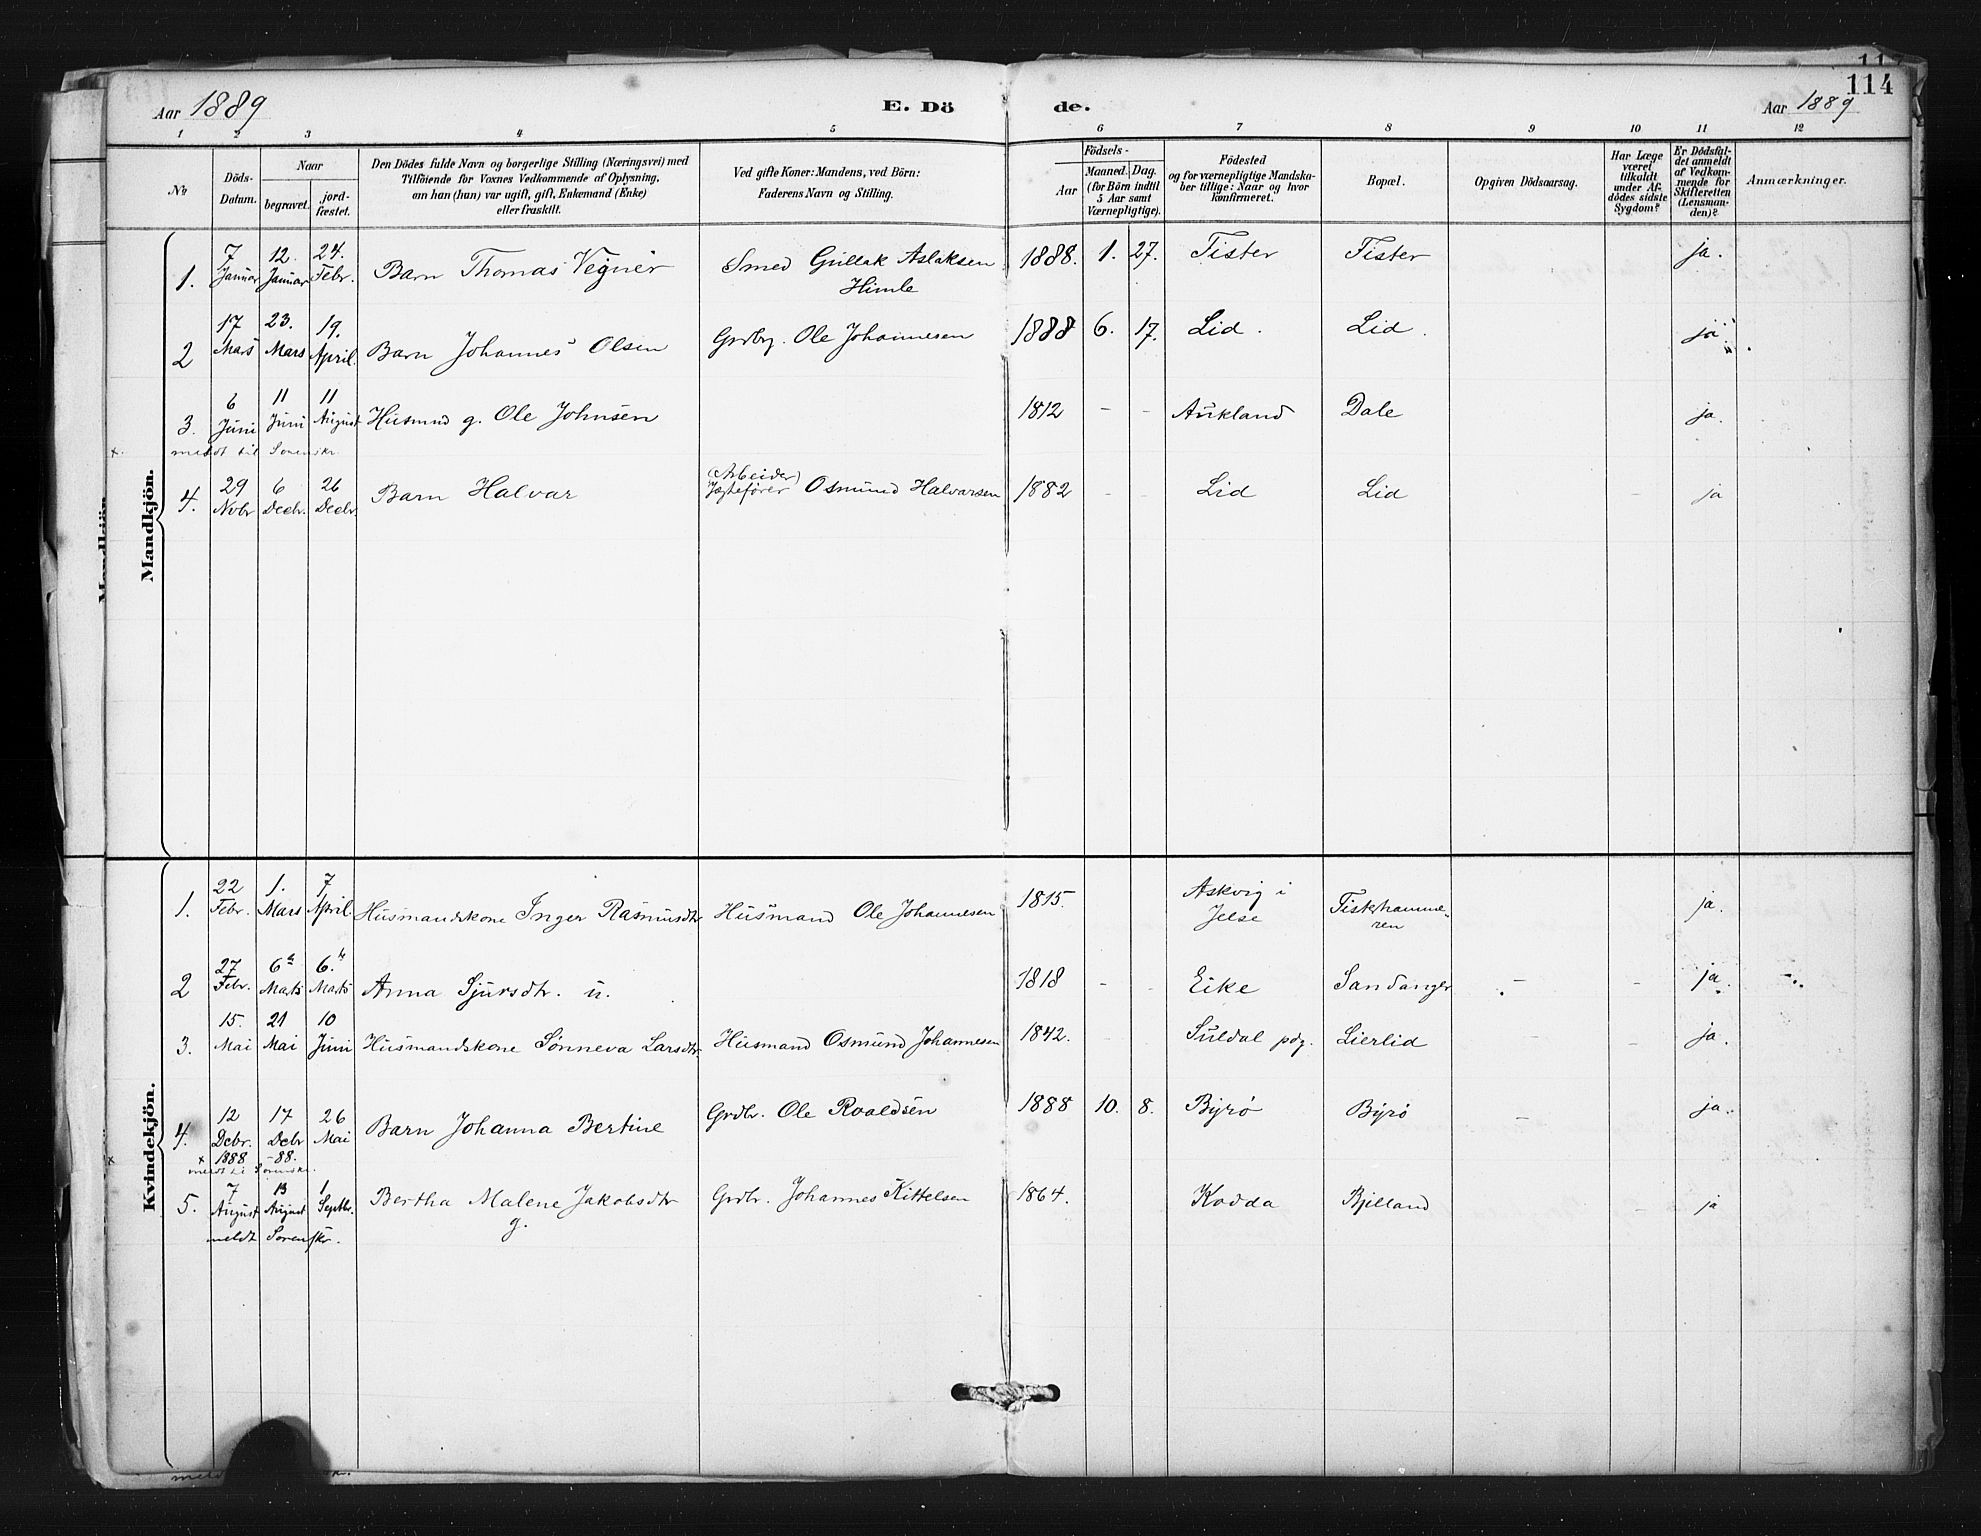 114
Aar 1889 E. Dö de. Aar 1889
1 2 3 4 5 6 7 8 9 10 11 12
No
Döds-Datum.
Naar
begravet.
jord-fæstet.
Den Dödes fulde Navn og borgerlige Stilling (Næringsvei) med
Tilföiende for Voxnes Vedkommende af Oplysning,
om han (hun) var ugift, gift, Enkemand (Enke)
eller fraskilt.
Ved gifte Koner: Mandens, ved Börn:
Faderens Navn og Stilling.
Födsels-
Aar
Maaned. Dag.
(for Börn indtil
5 Aar samt
Værnepligtige).
Födested
og for værnepligtige Mandska-
ber tillige: Naar og hvor
konfirmeret.
Bopæl.
Opgiven Dödsaarsag.
Har Læge
været
tilkaldt
under Af-
dödes sidste
Sygdom?
Er Dödsfal-
det anmeldt
af Vedkom-
mende for
Skifteretten
(Lensman-
den)?
Anmærkninger.
Mandkjön.
1. 7 Januar 12. Januar 24. Febr. Barn Thomas Vegner Smed Gullak Aslaksen Himle 1888. 1. 27. Fister Fister ja.
2 17 Mars 23. Mars 19. April. Barn Johannes Olsen Grdbr. Ole Johannesen 1888 6. 17. Lid. Lid. ja
3. 6 Juni 11 Juni 11 August Husmnd g. Ole Johnsen 1812 - - Aukland Dale ja.
x. meldt til Sorenskr.
4. 29 Novbr 6 Decbr. 26 Decbr. Barn Halvar (Arbeider) Jægtefører Osmund Halvarsen 1882 - - Lid Lid - ja
Kvindekjön.
1. 22 Febr. 1. Mars 7 April. Husmandskone Inger Rasmusdtr Husmand Ole Johannesen 1815. Askvig i Jelse Fisterhamme-ren ja.
2 27 Febr. 6 Marts 6. Marts Anna Sjursdtr. u. 1818 - - Eike Sandanger - - ja.
3. 15. Mai 21 Mai 10 Juni Husmandskone Sønneva Larsdtr Husmand Osmund Johannesen 1842. Suldal pdg. Lierlid - - ja.
4. 12 Debr. 1888 17 Debr -88. 26 Mai Barn Johanna Bertine Grdbr. Ole Roaldsen 1888 10. 8. Byrø Byrø - ja.
x meldt til Sorenskr.
5. 7 August 13 August 1 Septbr. Bertha Malene Jakobsdtr g. Grdbr. Johannes Kittelsen 1864. Kodda Bjelland - ja
meldt Sorenskr.